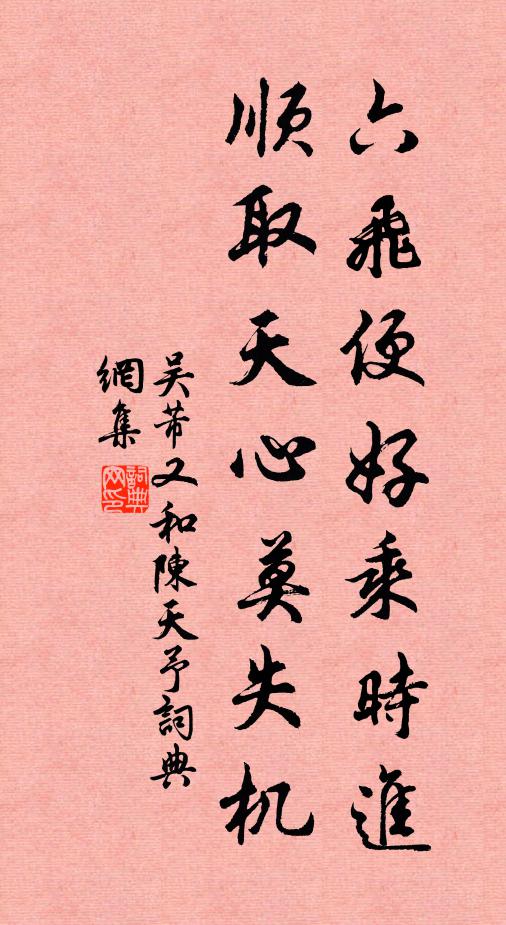 六飛便好乘時進
順取天心莫失机
吴芾又和陳天予詞典
網集
詞典網印